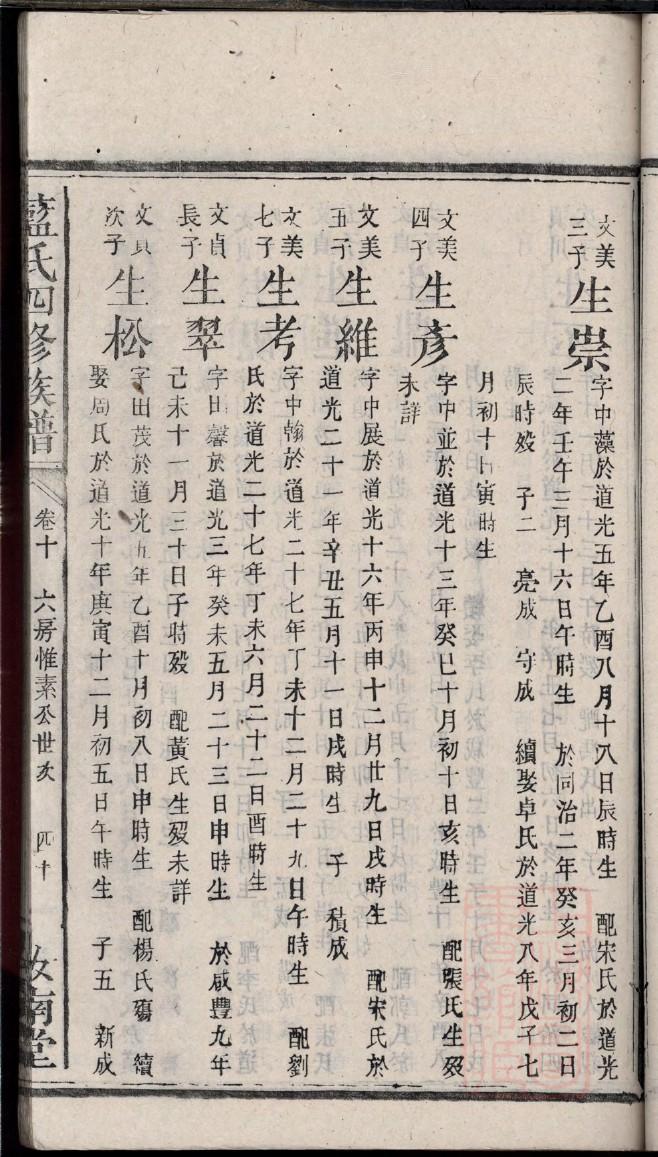 文美三子 生崇 字中藻於道光五年乙酉八月十八日辰時生 配宋氏於道光
二年壬午三月十六日午時生 於同治二年癸亥三月初二日
辰時殁 子二 亮成 守成 續娶卓氏於道光八年戊子七
月初十日寅時生
文美四子 生彥 字中並於道光十三年癸巳十月初十日亥時生 配張氏生殁
未詳
文美五子 生維 字中展於道光十六年丙申十二月廿九日戌時生 配宋氏於
道光二十一年辛丑五月十一日戌時生 子 積成
文美七子 生考 字中翰於道光二十七年丁未十二月二十九日午時生 配劉
氏於道光二十七年丁未六月二十二日酉時生
文貞長子 生翠 字田馨於道光三年癸未五月二十三日申時生 於咸豐九年
己未十一月三十日子時殁 配黃氏生殁未詳
文貞次子 生松 字田茂於道光五年乙酉十月初八日申時生 配楊氏殤 續
娶周氏於道光十年庚寅十二月初五日午時生 子五 新成
藍氏四修族譜 卷十 六房惟素公世次 四十 汝南堂